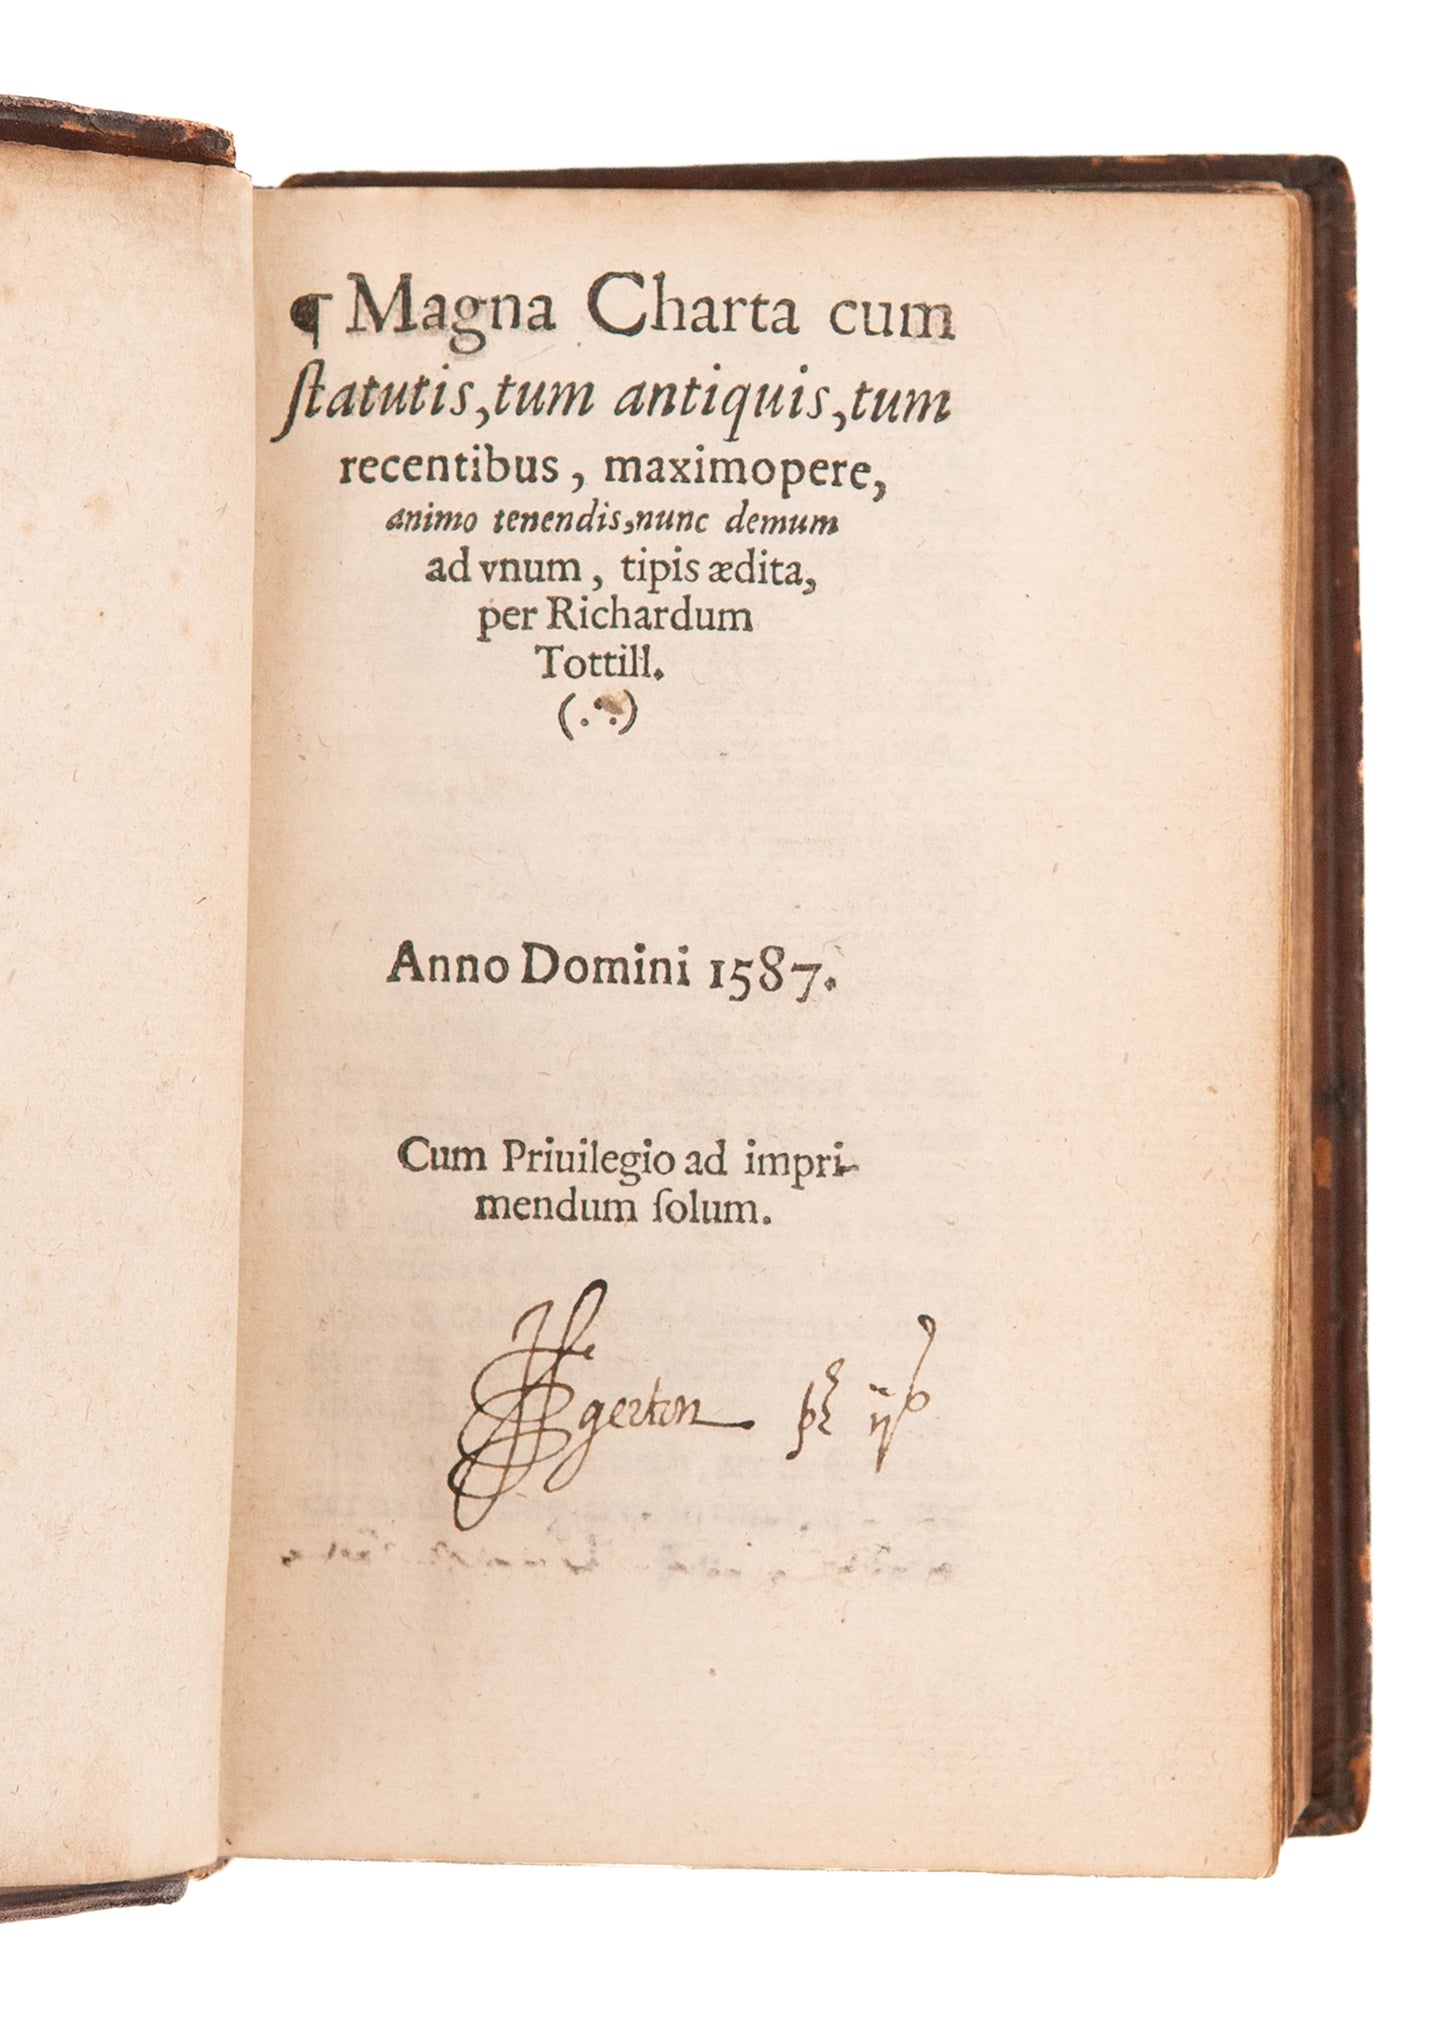 ¶ Magna Charta cum
ſtatutis,tum antiquis,tum
recentibus, maximopere,
animo tenendis,nunc demum
ad vnum, tipis ædita,
per Richardum
Tottill.
(.·.)
Anno Domini 1587.
Cum Priuilegio ad impri-
mendum ſolum.
Egerton